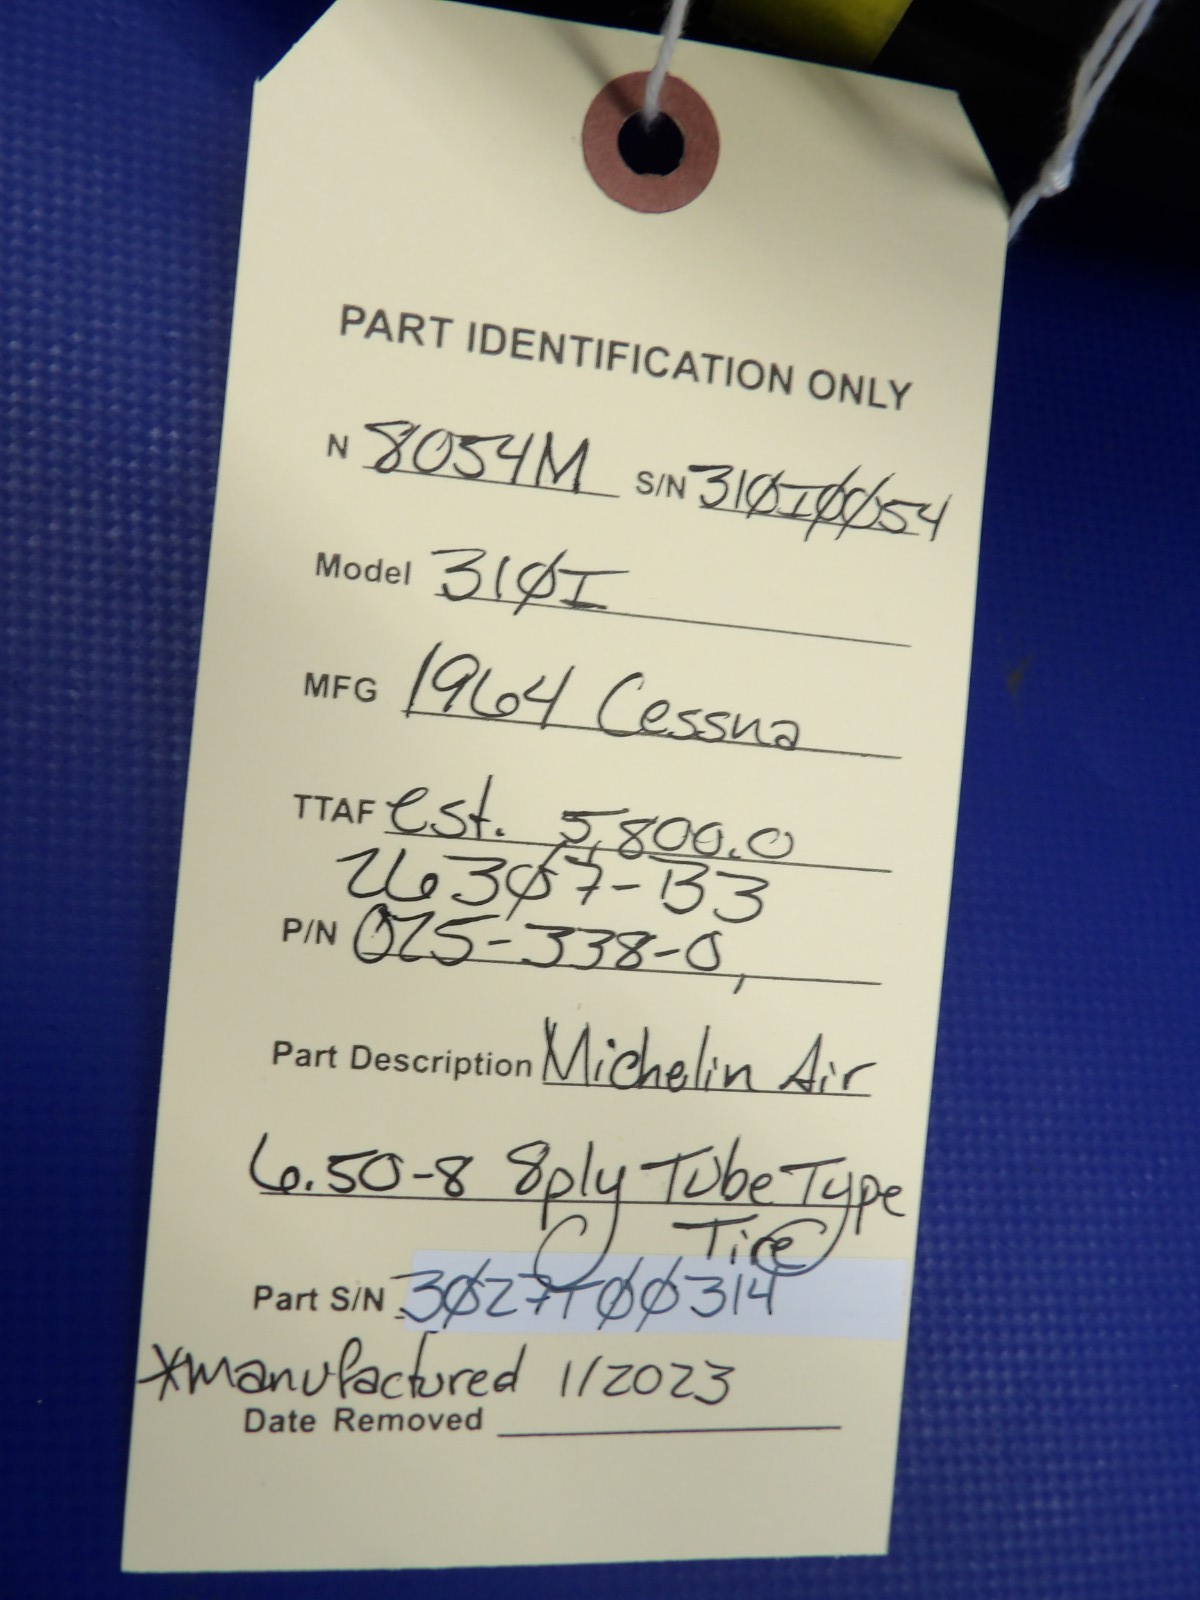 PART IDENTIFICATION ONLY
N 8054M S/N 310I0054
Model 310I
MFG 1964 Cessna
TTAF est. 5,800.0
26307-B3
P/N 025-338-0,
Part Description Michelin Air
6.50-8 8ply Tube Type
Tire
Part S/N 3027T00314
*manufactured 1/2023
Date Removed